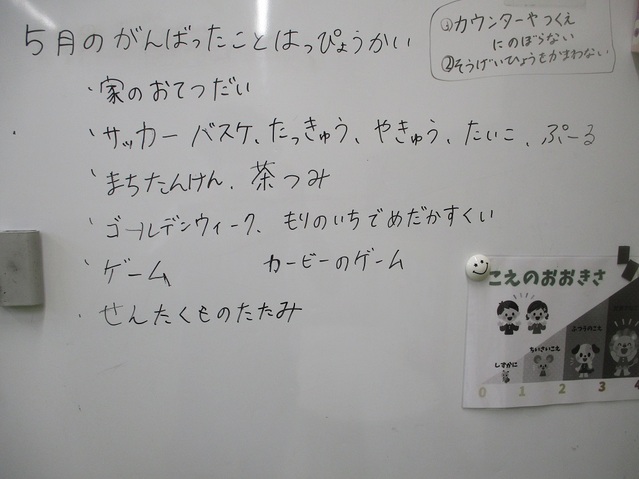 5月のがんばったことはっぴょうかい
①カウンターやつくえ
にのぼらない
②そうげいひょうをかまわない
・家のおてつだい
・サッカー バスケ、たっきゅう、やきゅう、たいこ、ぷーる
・まちたんけん、茶つみ
・ゴールデンウィーク、もりのいちでめだかすくい
・ゲーム カービーのゲーム
・せんたくものたたみ
こえのおおきさ
しずかに
ちいさいこえ
ふつうのこえ
0 1 2 3 4